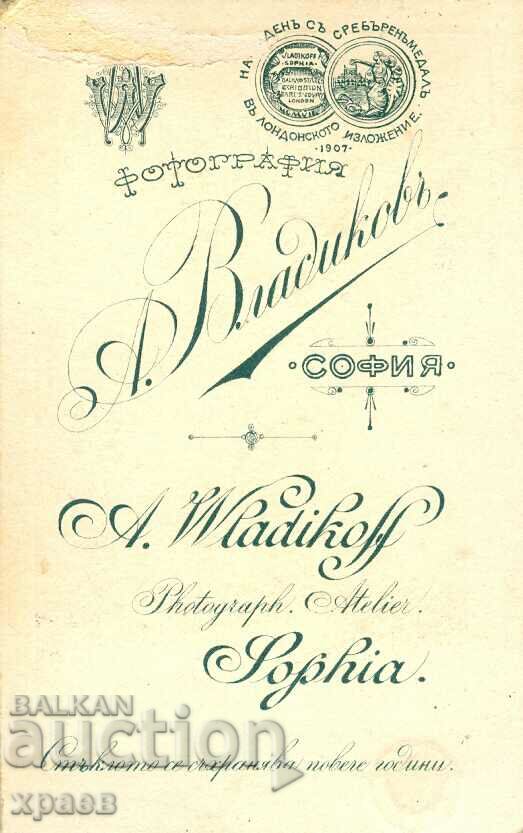 НАГРАДЕНЪ СЪ СРЕБЪРЕНЪ МЕДАЛЪ
ВЪ ЛОНДОНСКОТО ИЗЛОЖЕНИЕ.
·1907·
VLADIKOFF
·SOPHIA·
BALKAN STATES
EXHIBITION
EARL'S COURT
LONDON
MCMVII
ФОТОГРАФИЯ
А. Владиковъ
·СОФИЯ·
A. Wladikoff
Photograph. Atelier.
Sophia.
BALKAN
auction
Стъклото се съхранява повече години.
храев